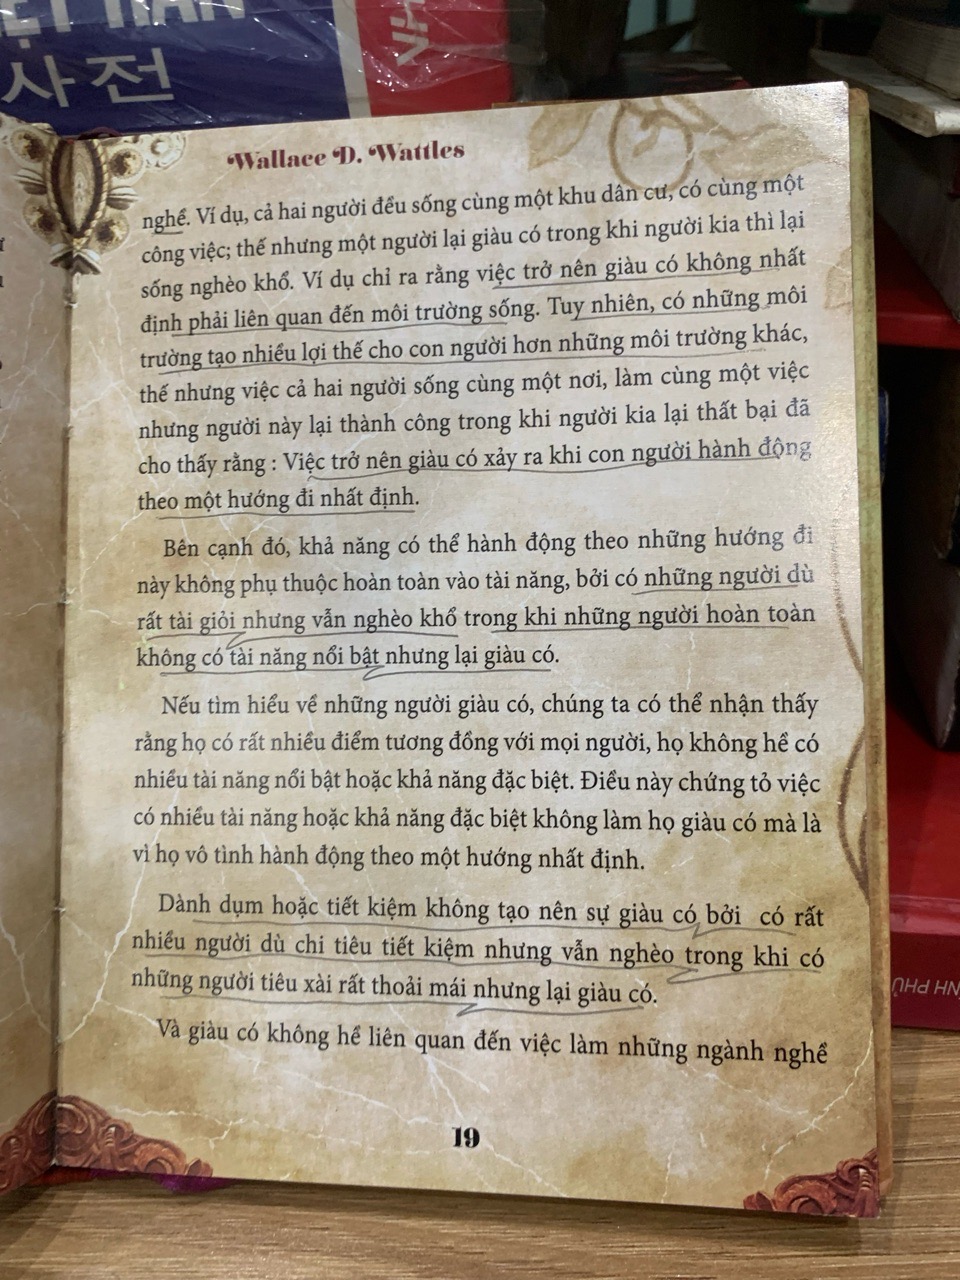 사전
Wallace D. Wattles
nghề. Ví dụ, cả hai người đều sống cùng một khu dân cư, có cùng một
công việc; thế nhưng một người lại giàu có trong khi người kia thì lại
sống nghèo khổ. Ví dụ chỉ ra rằng việc trở nên giàu có không nhất
định phải liên quan đến môi trường sống. Tuy nhiên, có những môi
trường tạo nhiều lợi thế cho con người hơn những môi trường khác,
thế nhưng việc cả hai người sống cùng một nơi, làm cùng một việc
nhưng người này lại thành công trong khi người kia lại thất bại đã
cho thấy rằng : Việc trở nên giàu có xảy ra khi con người hành động
theo một hướng đi nhất định.
Bên cạnh đó, khả năng có thể hành động theo những hướng đi
này không phụ thuộc hoàn toàn vào tài năng, bởi có những người dù
rất tài giỏi nhưng vẫn nghèo khổ trong khi những người hoàn toàn
không có tài năng nổi bật nhưng lại giàu có.
Nếu tìm hiểu về những người giàu có, chúng ta có thể nhận thấy
rằng họ có rất nhiều điểm tương đồng với mọi người, họ không hề có
nhiều tài năng nổi bật hoặc khả năng đặc biệt. Điều này chứng tỏ việc
có nhiều tài năng hoặc khả năng đặc biệt không làm họ giàu có mà là
vì họ vô tình hành động theo một hướng nhất định.
Dành dụm hoặc tiết kiệm không tạo nên sự giàu có bởi có rất
nhiều người dù chi tiêu tiết kiệm nhưng vẫn nghèo trong khi có
những người tiêu xài rất thoải mái nhưng lại giàu có.
Và giàu có không hề liên quan đến việc làm những ngành nghề
19